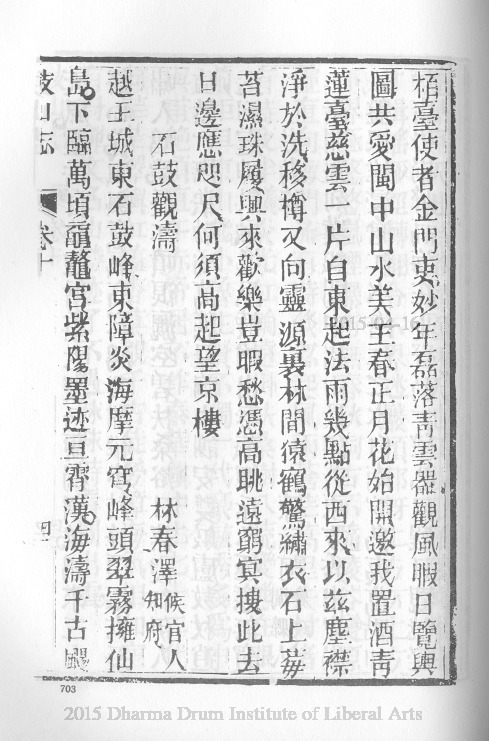 栢臺使者金門吏妙年磊落青雲器觀風暇日覽輿
圖共愛閩中山水美王春正月花始開邀我置酒青
蓮臺慈雲一片自東起法雨幾點從西來以茲塵襟
淨於洗移樽又向靈源裏林間猿鶴驚繡衣石上莓
苔濕珠履興來歡樂豈暇愁憑高眺遠窮冥搜此去
日邊應咫尺何須高起望京樓
石鼓觀濤 林春澤 候官人知府
越王城東石鼓峰東障炎海摩元穹峰頭翠霧擁仙
島下臨萬頃黿鼉宮紫陽墨迹亘霄漢海濤千古
鼓山志 卷十 四
703
2015 Dharma Drum Institute of Liberal Arts